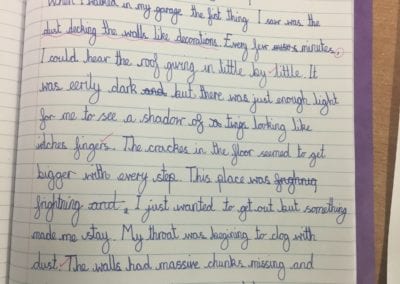 When I walked in my garage the first thing I saw was the
dust decking the walls like decorations. Every few minutes,
I could hear the roof giving in little by little. It
was eerily dark and but there was just enough light
for me to see a shadow of twigs looking like
witches fingers. The crackes in the floor seemed to get
bigger with every step. This place was
frightning and, I just wanted to get out but something
made me stay. My throat was begining to clog with
dust. The walls had massive chunks missing and